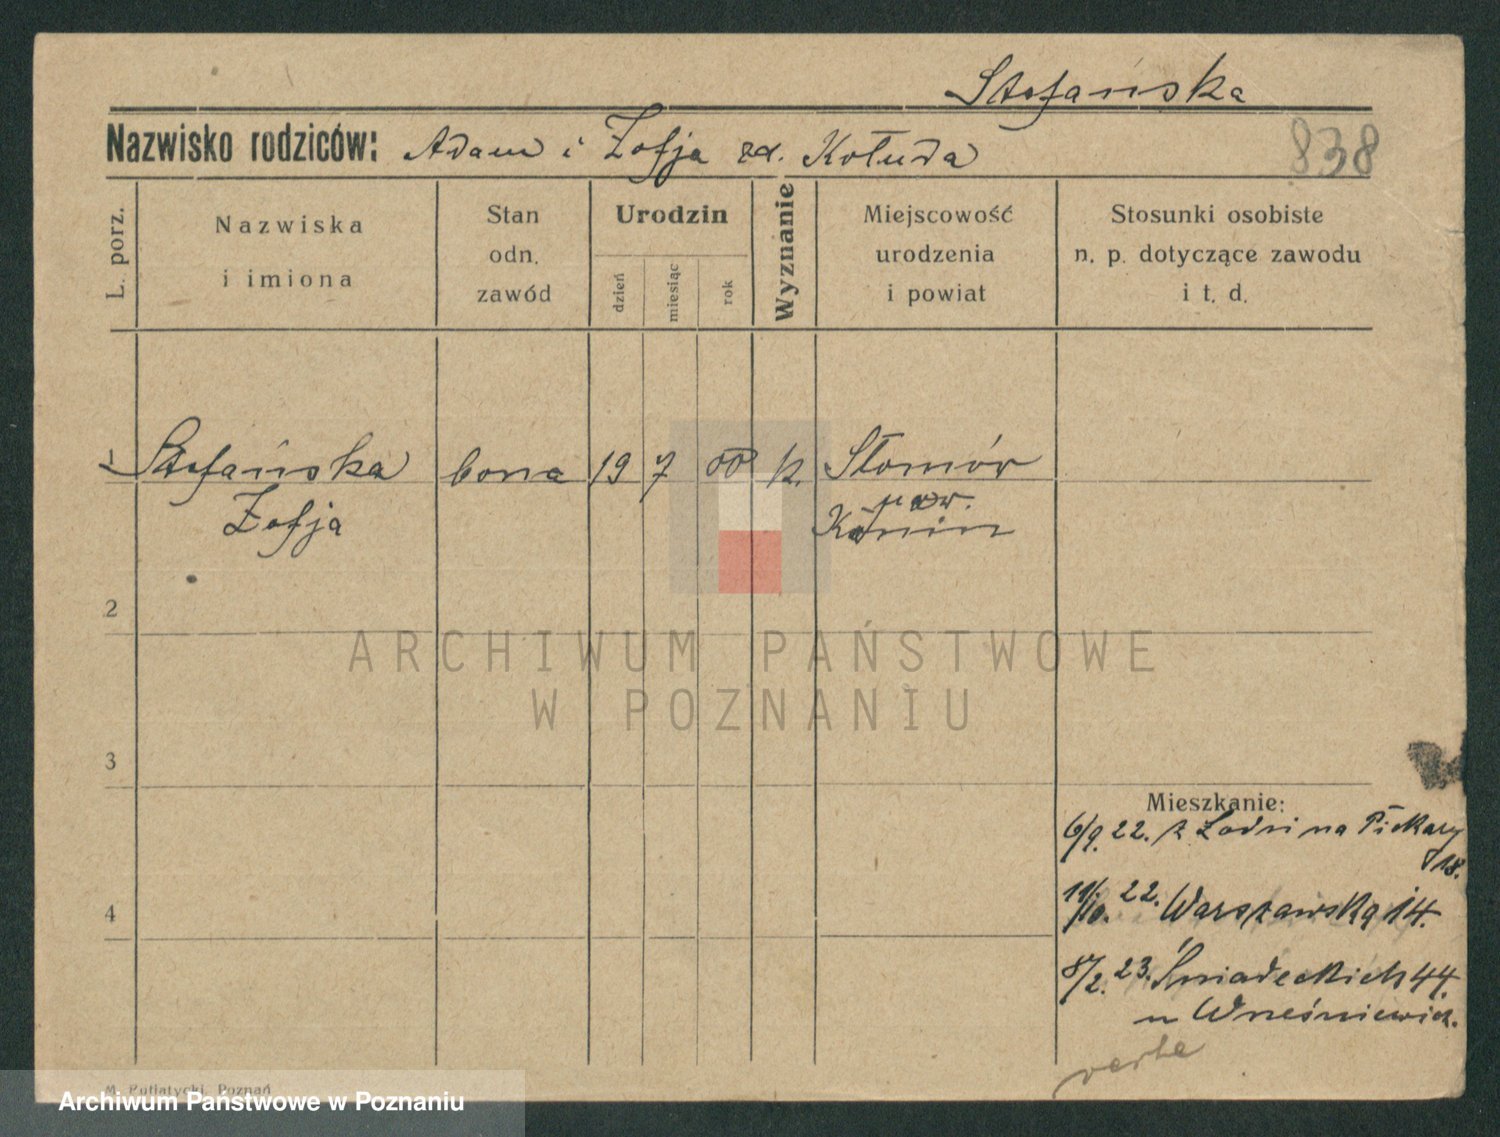 Stefańska
Nazwisko rodziców: Adam i Zofja zd. Kołuda
838
L. porz.
Nazwiska
i imiona
Stan
odn.
zawód
Urodzin
dzień
miesiąc
rok
Wyznanie
Miejscowość
urodzenia
i powiat
Stosunki osobiste
n. p. dotyczące zawodu
i t. d.
1 Stefańska bona 19 7 00 k. Słomów
Zofja
pow.
Konin
2
ARCHIWUM PAŃSTWOWE
W POZNANIU
3
Mieszkanie:
6/9. 22. z Łodzi na Piekary
18.
4
11/10. 22. Warszawska 14.
8/2. 23. Śniadeckich 44.
u Wneśniewicz.
verte
M. Putiatycki, Poznań
Archiwum Państwowe w Poznaniu